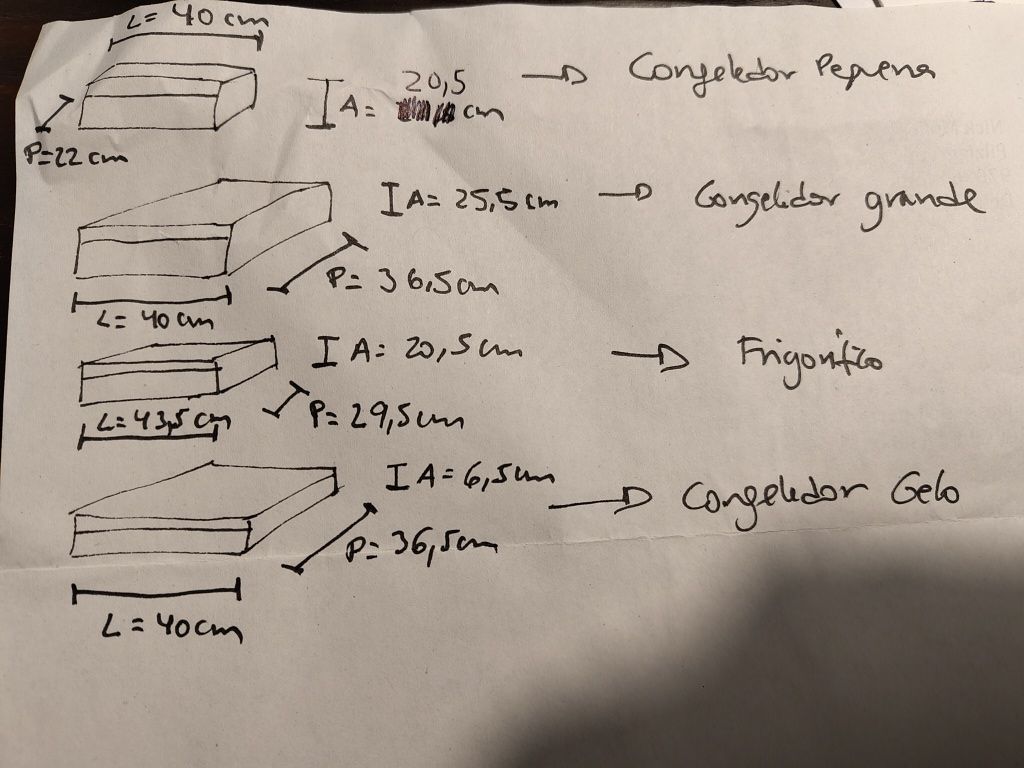 L= 40 cm
A= 20,5 cm → Congelador Pequena
P=22 cm
A= 25,5 cm → Congelador grande
P= 36,5cm
L= 40 cm
A= 20,5cm → Frigorífico
L= 43,5cm P= 29,5cm
A= 6,5cm → Congelador Gelo
P= 36,5cm
L = 40cm